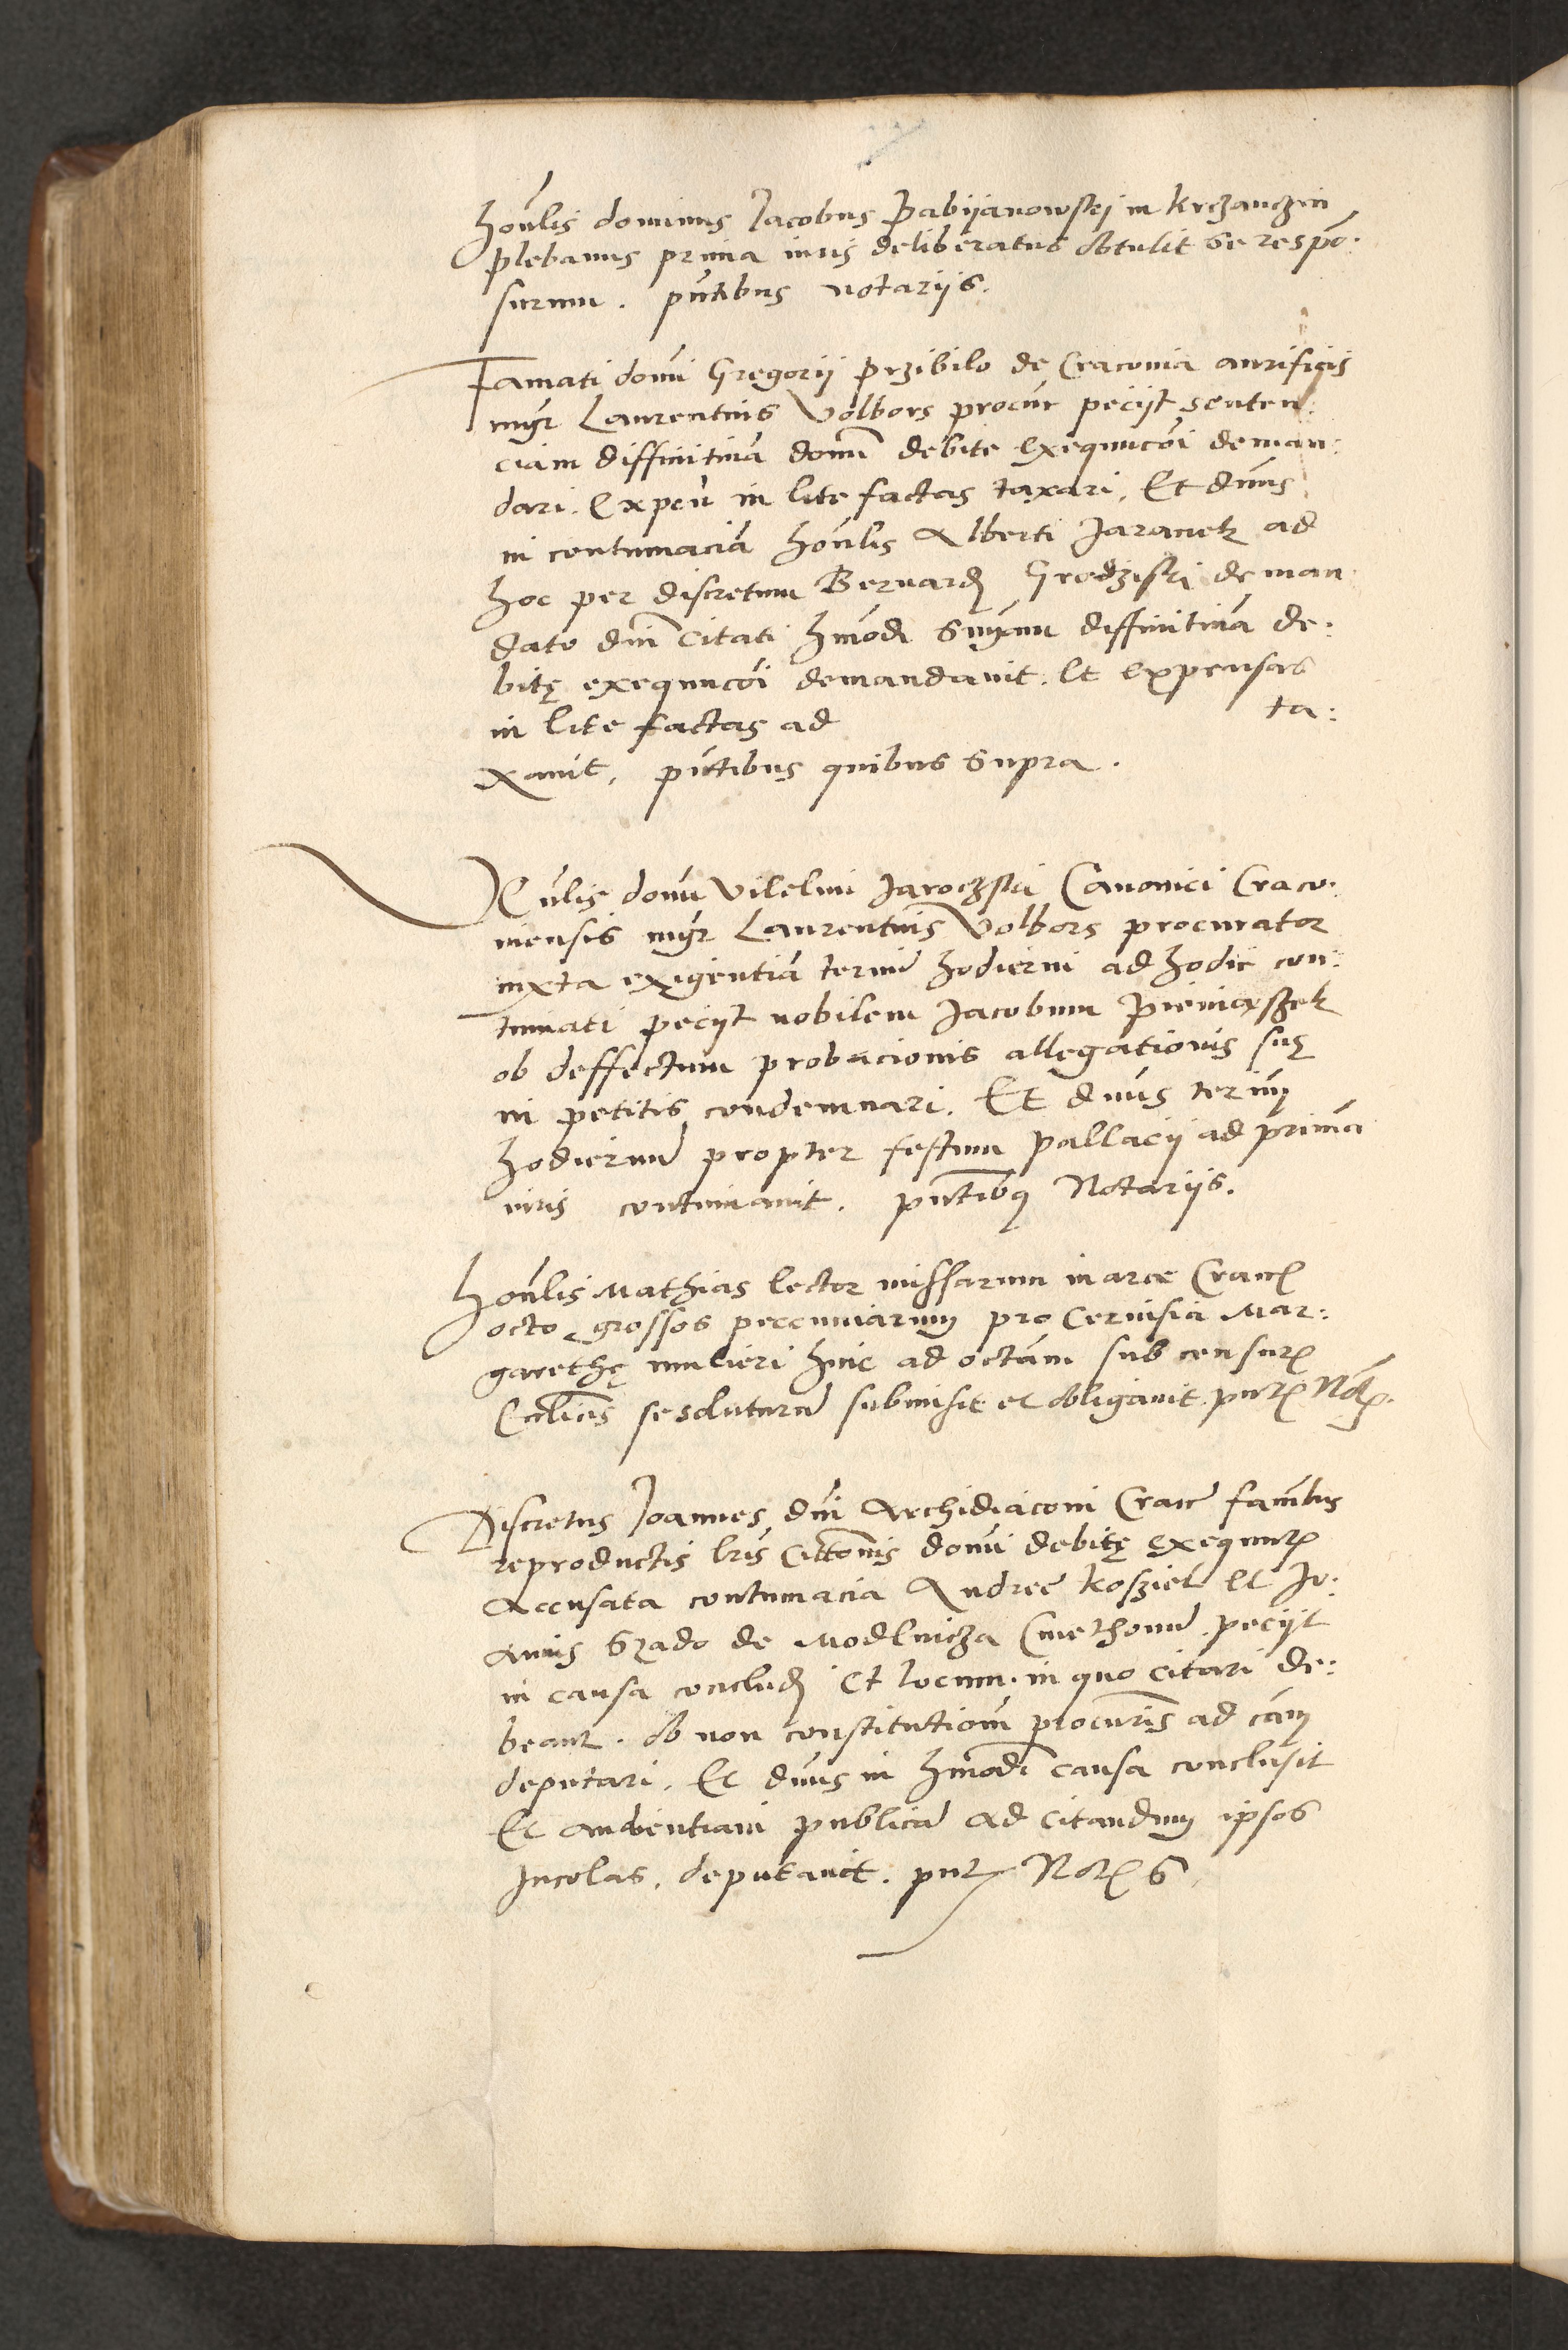 honlis dominus Jacobus Pabijanowskj in Krzanczin
plebanus prima iuris deliberatus obtulit se respon:
surum. pntibus notariis.
Famati domi Gregorij Przibilo de Craconia aurificis
mgr Laurentius Volbors procur pecijt senten:
ciam diffinitiua domi debite exequucoi deman:
dari. Expen in lite factas taxari. Et dnus
in contumacia honlis Alberti Jaranek ad
hoc per discretum Bernard Grodziski de man
dato dni citati hmodi snyam diffinitiua de:
bitę exequucoi demandauit. et expensas
in lite factas ad ta:
xauit, pntibus quibus supra.
Vnlis domi Vilelmi Jaroczski Canonici Craco:
niensis mgr Laurentius Volbors procurator
iuxta exigentia termi hodierni ad hodie con:
tinuati pecijt nobilem Jacobum Pieniaszek
ob deffectum probacionis allegationis suę
in petitis condemnari. Et dnus termu
hodiernu propter festum pallacij ad prima
iuris continuauit. pntibq Notariis.
Honlis Mathias lector missarum in arce Cracn
octo grossos peccuniarum pro ceruisia Mar:
garethę mulieri hinc ad octam sub censur
Eccliis se soluturu submisit et obligauit. pntn Notr.
Discretus Joannes dni Archidiaconi Crace famlus
reproductis lris cittonis domi debitę exequut
Accusata contumacia Andreę Kosziel et Jo:
annis Szado de Modlnicza Cmethonu pecijt
in causa conclud et locum in quo citari de:
beant. ob non constitutiom procuris ad cam
deputari. Et dnus in hmodi causa conclusit
Et audientiam publica ad citandum ipsos
Incolas. deputauit. pnt Notr S